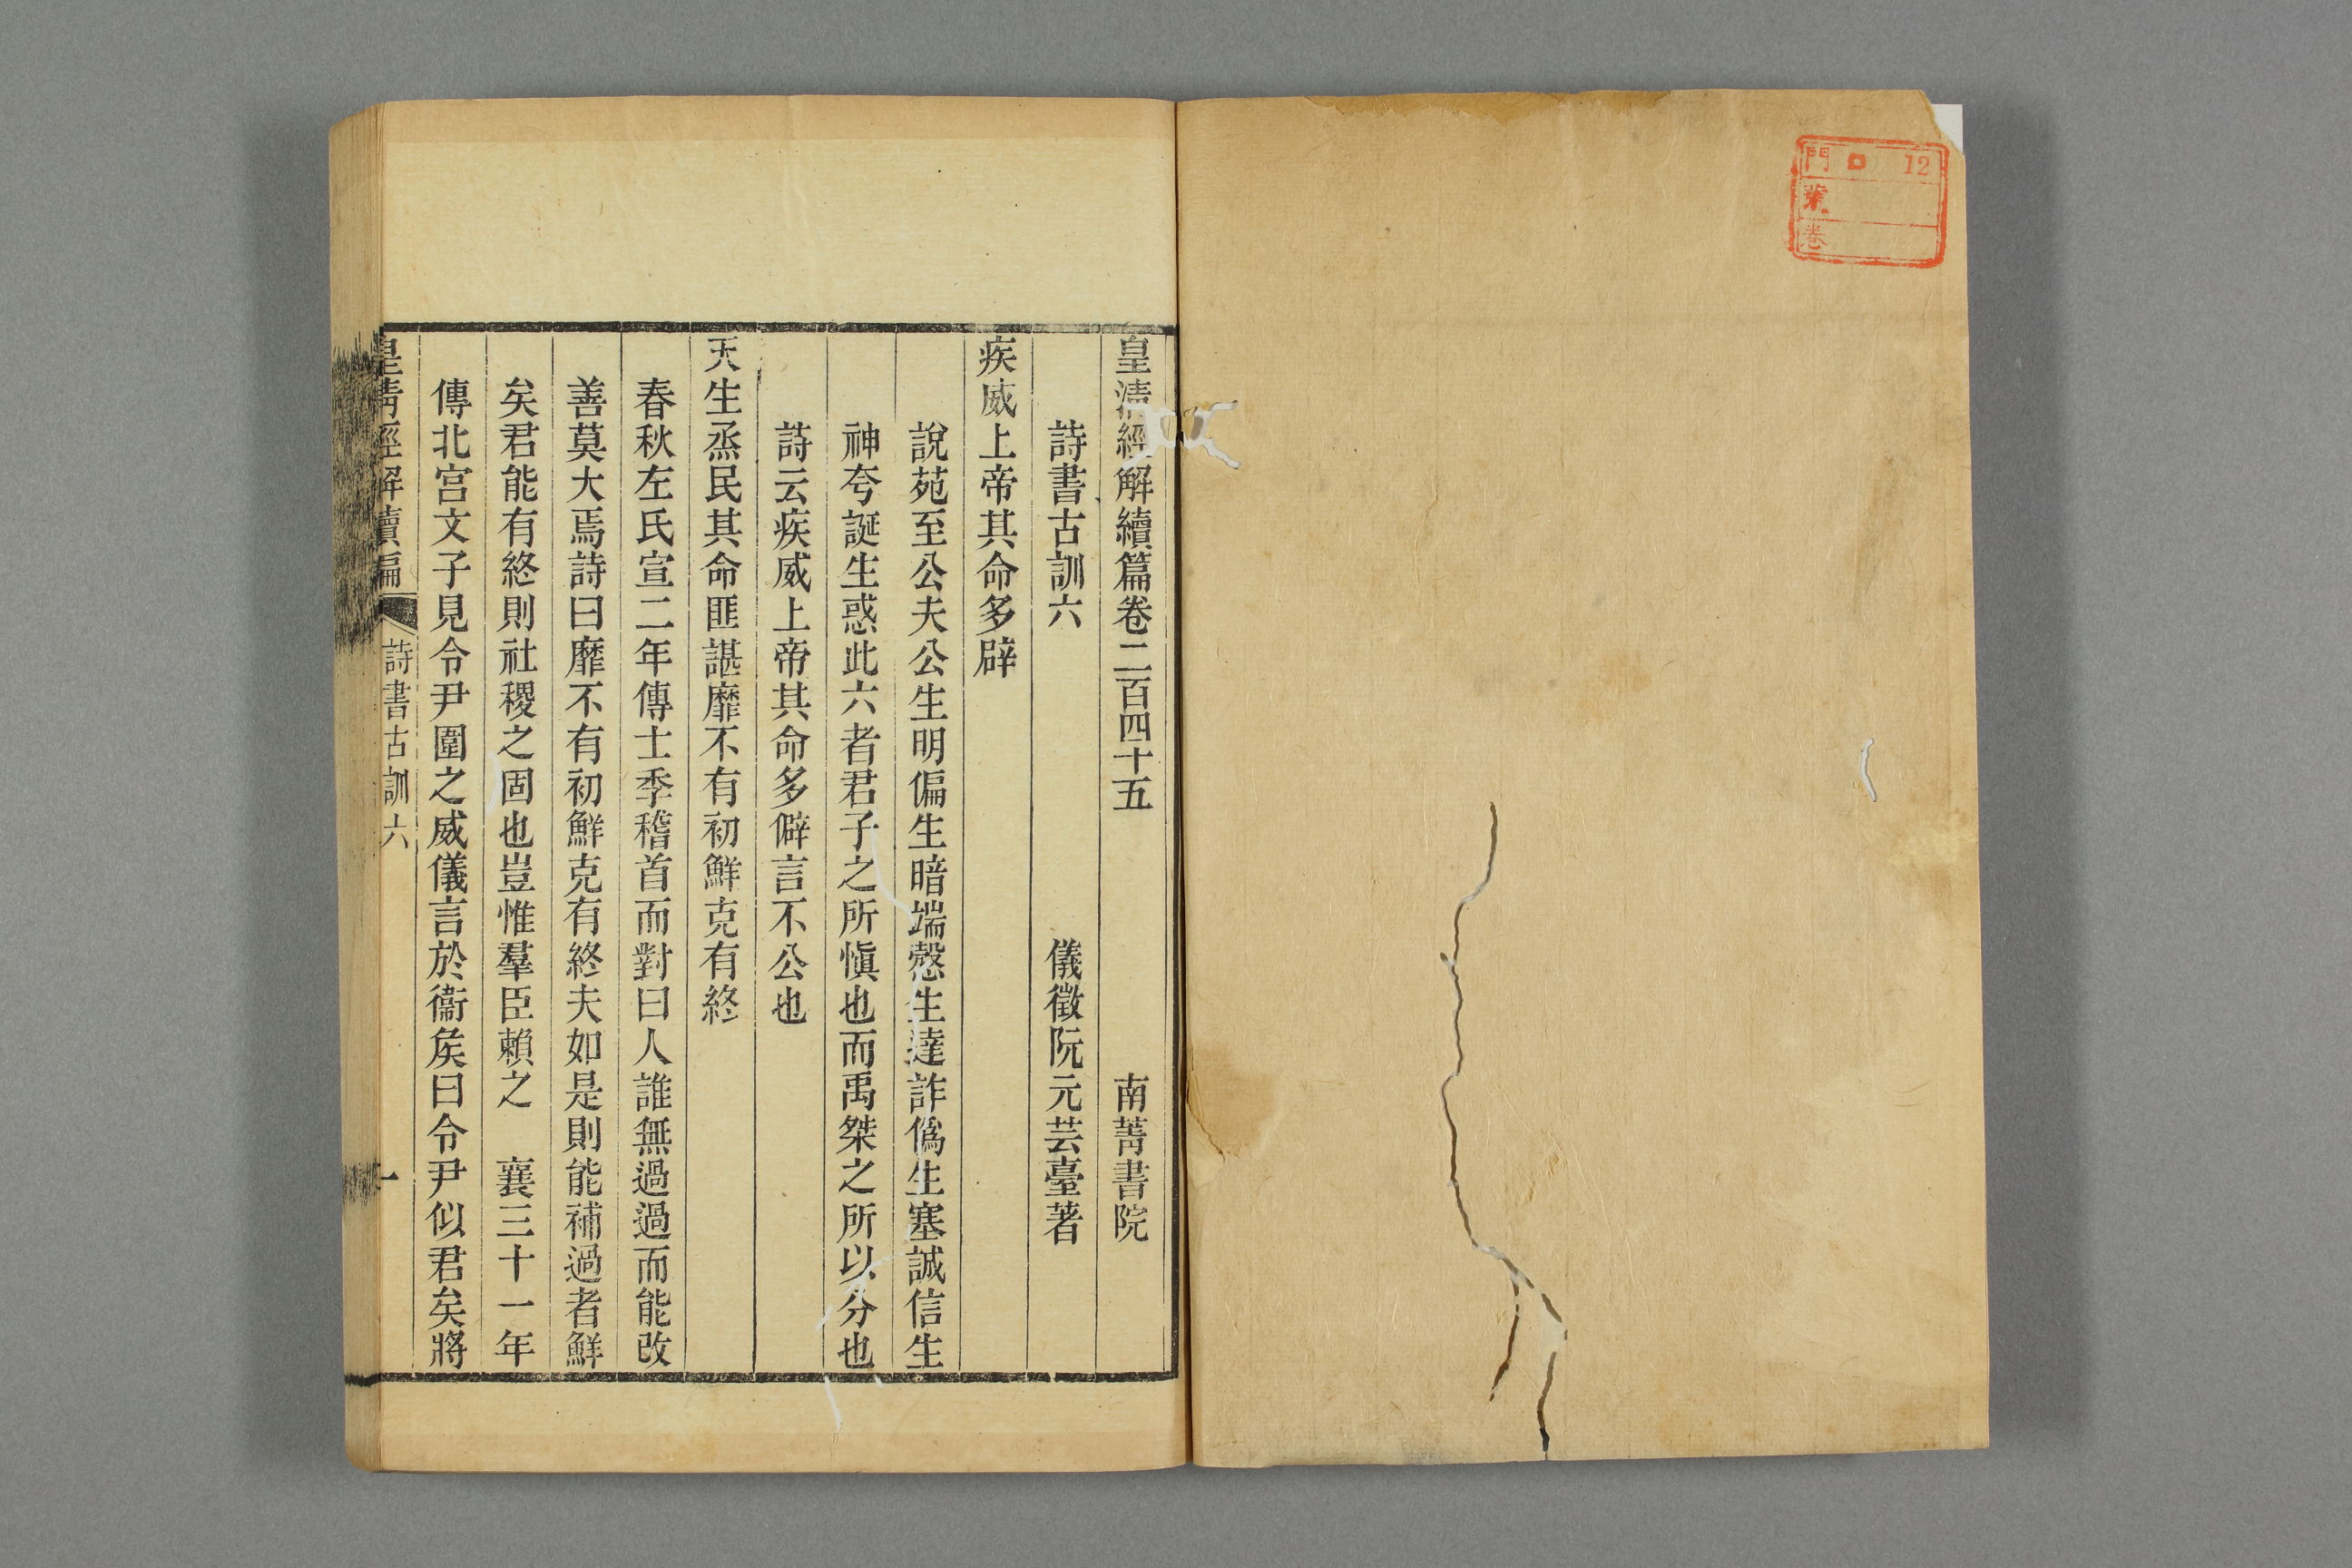 門 口 12
葉
卷
皇清經解續篇卷二百四十五 南菁書院
詩書古訓六 儀徵阮元芸臺著
疾威上帝其命多辟
說苑至公夫公生明偏生暗端慤生達詐僞生塞誠信生
神夸誕生惑此六者君子之所愼也而禹桀之所以分也
詩云疾威上帝其命多僻言不公也
天生烝民其命匪諶靡不有初鮮克有終
春秋左氏宣二年傳士季稽首而對曰人誰無過過而能改
善莫大焉詩曰靡不有初鮮克有終夫如是則能補過者鮮
矣君能有終則社稷之固也豈惟羣臣賴之 襄三十一年
傳北宮文子見令尹圍之威儀言於衞矦曰令尹似君矣將
皇清經解續編 詩書古訓六 一